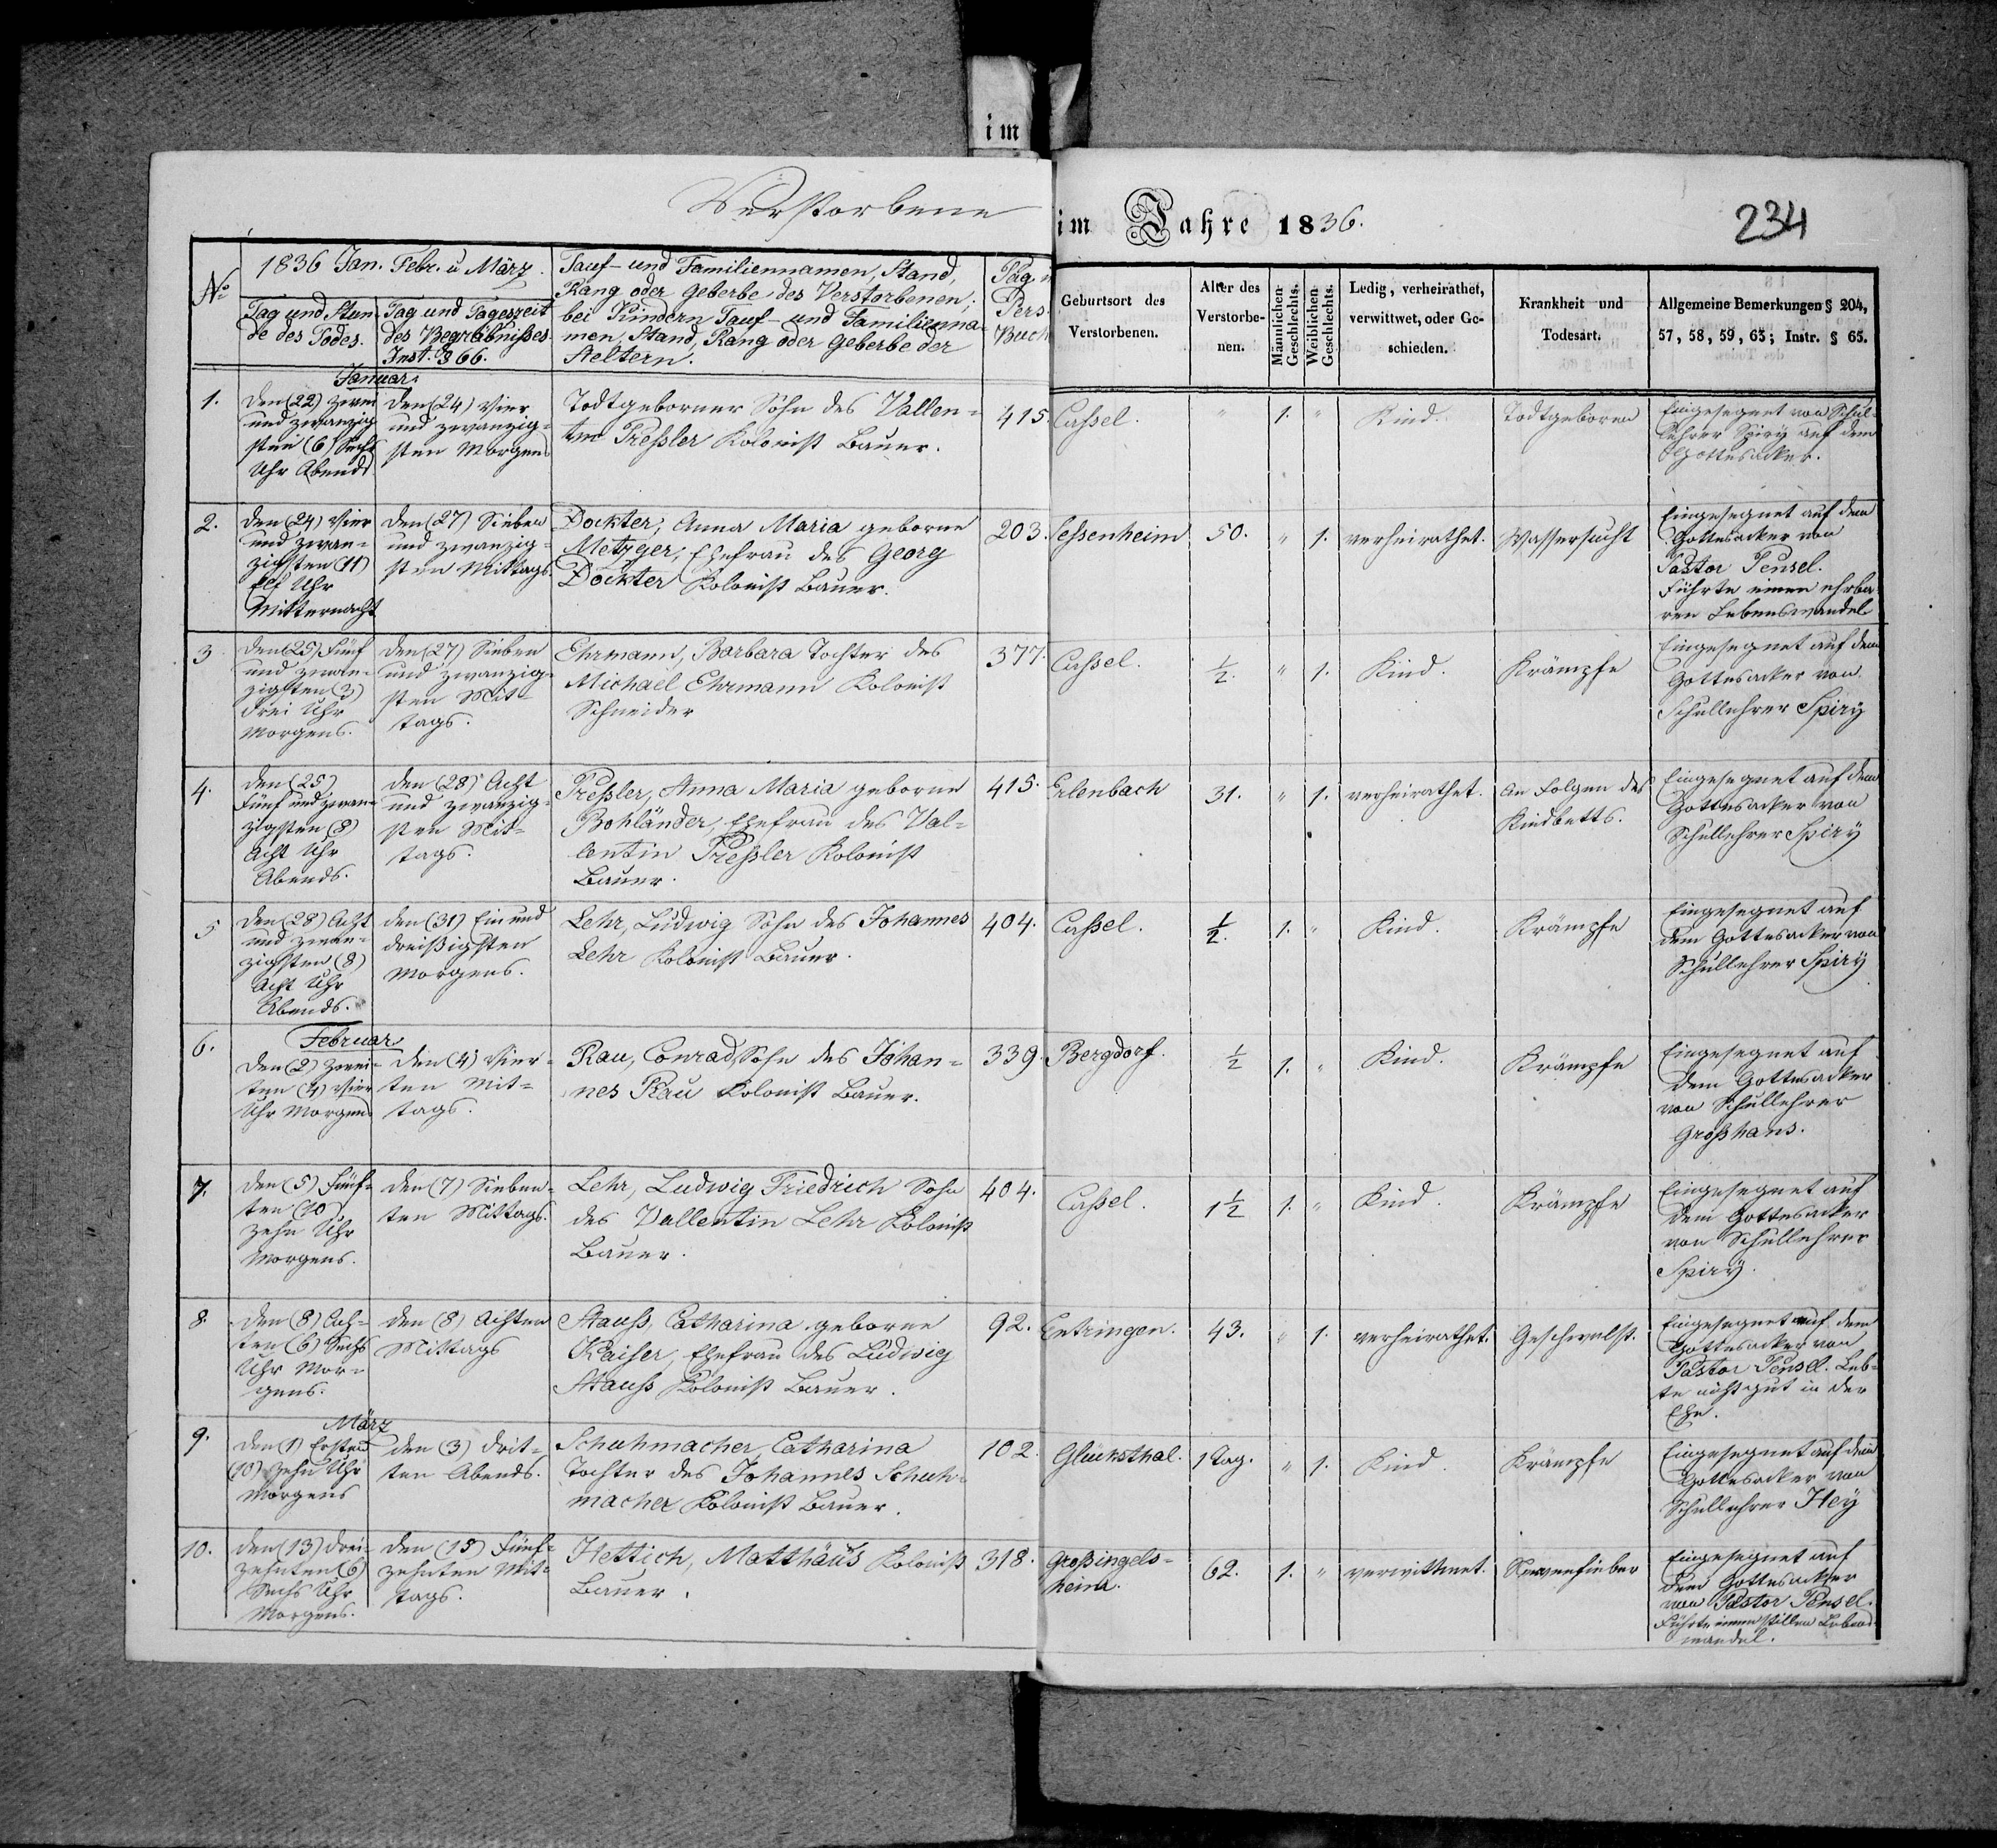 im
Verstorbene
im Jahre 1836.
234
No
1836 Jan. Febr. u März.
Tag und Stun-
de des Todes.
Tag und Tageszeit
des Begräbnißes.
Inst. § 66.
Tauf- und Familiennamen, Stand,
Rang oder Geberbe des Verstorbenen;
bei Kindern Tauf- und Familienna-
men, Stand, Rang oder Geberbe der
Aeltern.
Pag.
Pers-
Buch
Geburtsort des
Verstorbenen.
Alter des
Verstorbe-
nen.
Männlichen
Geschlechts.
Weiblichen
Geschlechts.
Ledig, verheirathet,
verwittwet, oder Ge-
schieden.
Krankheit und
Todesart.
Allgemeine Bemerkungen § 204,
57, 58, 59, 63; Instr. § 65.
Januar.
1.
den (22) zwei
und zwanzig
sten (6) Sechs
Uhr Abends
den (24) Vier
und zwanzig-
sten Morgens
Todtgeborner Sohn des Vallen-
tin Preßler Kolonist Bauer.
415.
Caßel.
"
1.
"
Kind.
Todtgeboren
Eingesegnet von Schul-
lehrer Spiry auf dem
Gottesacker.
2.
den (24) Vier
und zwan-
zigsten (11)
Elf Uhr
Mitternacht
den (27) Sieben
und zwanzig-
sten Mittags.
Dockter, Anna Maria geborne
Metzger, Ehefrau des Georg
Dockter Kolonist Bauer.
203.
Sessenheim
50.
"
1.
verheirathet.
Wassersucht
Eingesegnet auf dem
Gottesacker von
Pastor Pensel.
Führte einen ehrba-
ren Lebenswandel
3
den (25) Fünf
und zwan-
zigsten (3)
Drei Uhr
Morgens.
den (27) Sieben
und zwanzig-
sten Mit-
tags.
Ehrmann, Barbara Tochter des
Michael Ehrmann Kolonist
Schneider
377.
Caßel.
1/2.
"
1.
Kind.
Krämpfe
Eingesegnet auf dem
Gottesacker von
Schullehrer Spiry
4.
den (25)
Fünf und zwan-
zigsten (8)
Acht Uhr
Abends.
den (28) Acht
und zwanzig-
sten Mit-
tags.
Preßler, Anna Maria geborne
Bohländer, Ehefrau des Val-
lentin Preßler Kolonist
Bauer.
415.
Erlenbach
31.
"
1.
verheirathet.
An Folgen des
Kindbetts.
Eingesegnet auf dem
Gottesacker von
Schullehrer Spiry
5
den (28) Acht
und zwan-
zigsten (8)
Acht Uhr
Abends.
den (31) Ein und
dreißigsten
Morgens.
Lehr, Ludwig Sohn des Johannes
Lehr Kolonist Bauer.
404.
Caßel.
1/2.
1.
"
Kind.
Krämpfe
Eingesegnet auf
dem Gottesacker von
Schullehrer Spiry
Februar
6.
den (2) Zwei-
ten (4) Vier
Uhr Morgens
den (4) Vier-
ten Mit-
tags.
Rau, Conrad, Sohn des Johan-
nes Rau Kolonist Bauer.
339.
Bergdorf.
1/2
1.
"
Kind.
Krämpfe
Eingesegnet auf
dem Gottesacker
von Schullehrer
Großhans.
7.
den (5) Fünf-
ten (10)
Zehn Uhr
Morgens.
den (7) Sieben-
ten Mittags.
Lehr, Ludwig Friedrich Sohn
des Vallentin Lehr Kolonist
Bauer.
404.
Caßel.
1 1/2
1.
"
Kind.
Krämpfe
Eingesegnet auf
dem Gottesacker
von Schullehrer
Spiry.
8.
den (8) Ach-
ten (6) Sechs
Uhr Mor-
gens.
den (8) Achten
Mittags
Stauß, Catharina geborne
Kaiser, Ehefrau des Ludwig
Stauß Kolonist Bauer.
92.
Entringen.
43.
"
1.
verheirathet.
Geschwulst.
Eingesegnet auf dem
Gottesacker von
Pastor Pensel. Leb-
te nicht gut in der
Ehe.
März
9.
den (1) Ersten
(10) Zehn Uhr
Morgens
den (3) Drit-
ten Abends.
Schuhmacher, Catharina
Tochter des Johannes Schuh-
macher Kolonist Bauer.
102.
Glücksthal.
1 Tag.
"
1.
Kind.
Krämpfe
Eingesegnet auf dem
Gottesacker von
Schullehrer Hey
10.
den (13) Drei-
zehnten (6)
Sechs Uhr
Morgens.
den (15) Fünf-
zehnten Mit-
tags.
Hettich, Matthäus Kolonist
Bauer.
318.
Großingels-
heim.
62.
1.
"
verwittwet.
Nervenfieber
Eingesegnet auf
dem Gottesacker
von Pastor Pensel.
Führte einen stillen Lebens-
wandel.